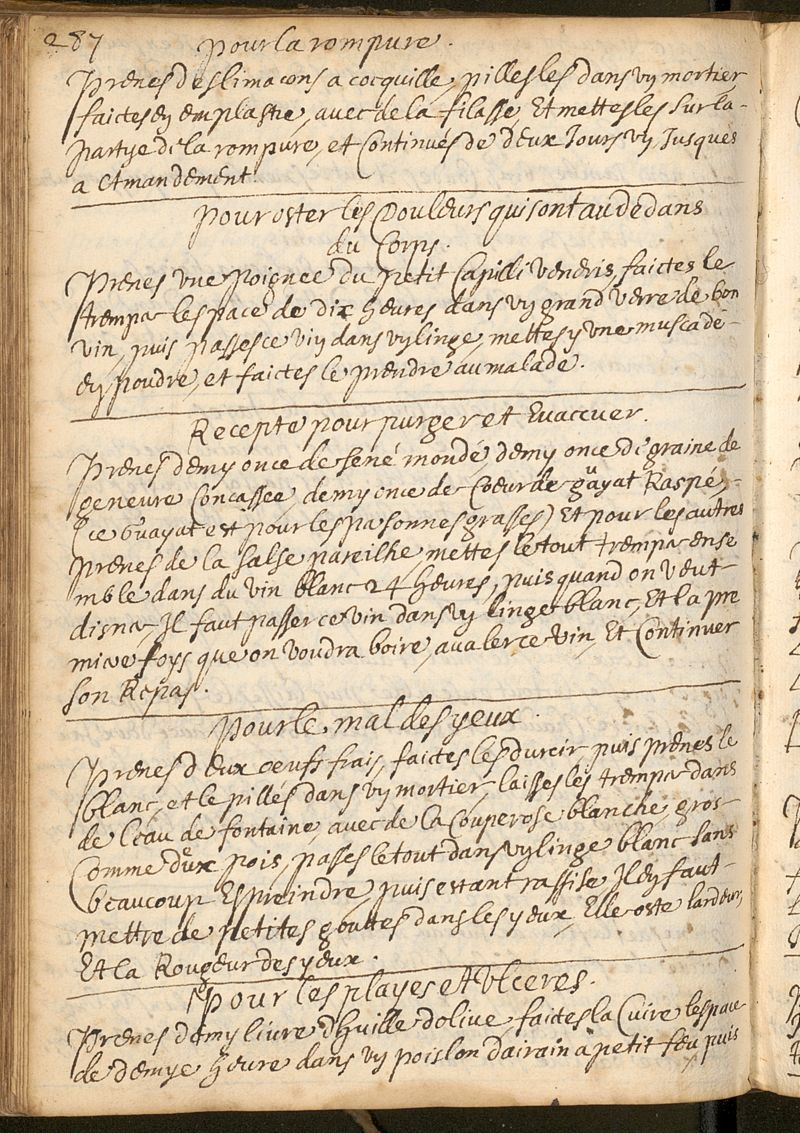 287
pour la rompure.
Prenes des limacons a cocquille, pilles les dans vy mortier
faictes ey emplastre, avec de la filasse, Et mettes les sur la
partye de la rompure, et Continués de deux Jours vy Jusques
a Amandement.
pour oster les Douleurs qui sont au dedans
du Corps.
Prenes vne poignee du petit Capilli veneris, faictes le
tremper lespace de dix heures dans vy grand verre de bon
vin, puis passes ce viy dans vy linge, mettes y vne muscade
ey poudre, et faictes le prendre au malade.
Recepte pour purger et Evaccuer.
Prenes demy once de sené mondé, demy once de graine de
geneure Concassee, demy once de Coeur de gayat Raspé,
(ce Guayat est pour les personnes grasses) Et pour les autres
prenes de la salse pareilhe, mettes le tout tremper ense
mble dans du vin blanc 24 heures, puis quand on veut
disner, Il faut passer ce vin dans vy linge blanc, Et la pre
miere foys que on voudra boire, avaler ce vin, Et Continuer
son Repas.
pour le mal des yeux.
Prenes deux oeufs frais, faictes les durcir puis prenes le
blanc, et le pillés dans vy mortier, laisses les tremper dans
de leau de fontaine, avec de la Couperose blanche, gros
Comme deux pois, passes le tout dans vy linge blanc sans
beaucoup Espreindre, puis estant rassise Il ey faut
mettre de petites gouttes dans les yeux, Elle oste lardeur,
Et la Rougeur des yeux.
Pour les playes et Vlceres.
Prenes demy livre dhuille dolive, faictes la Cuire lespace
de demye heure dans vy poislon dairain a petit feu puis